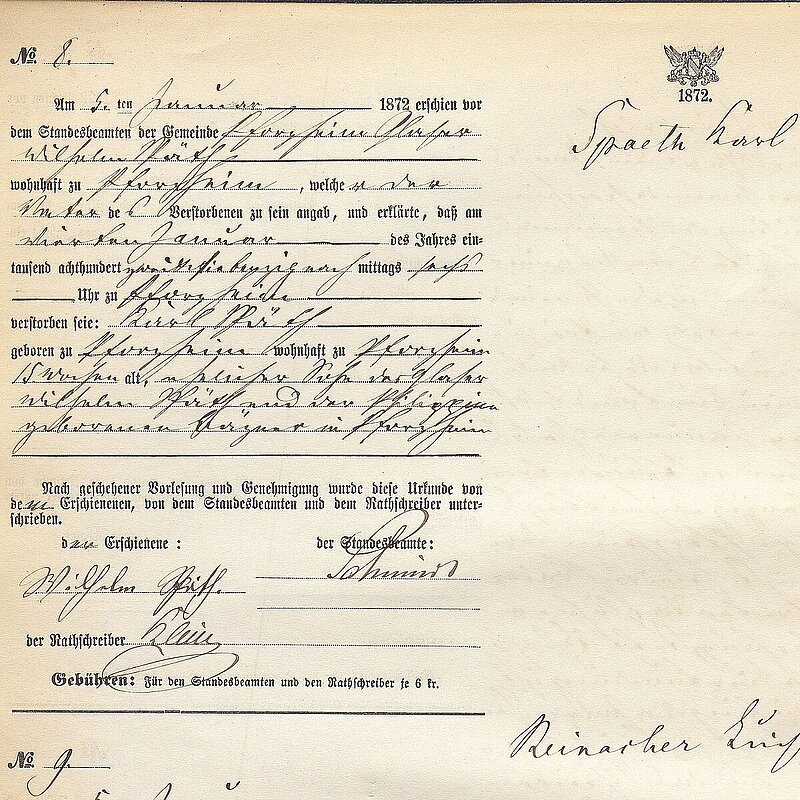 No. 8.
1872.
Spaeth Karl
Am 5. ten Januar 1872 erschien vor
dem Standesbeamten der Gemeinde Pforzheim Glaser
Wilhelm Späth
wohnhaft zu Pforzheim, welcher der
Vater des Verstorbenen zu sein angab, und erklärte, daß am
vierten Januar des Jahres ein-
tausend achthundert zwei & siebenzig nach mittags sechs
Uhr zu Pforzheim
verstorben seie: Karl Späth
geboren zu Pforzheim wohnhaft zu Pforzheim
15 Wochen alt, ehelicher Sohn des Glaser
Wilhelm Späth und der Philippine
geborenen in Pforzheim
Nach geschehener Vorlesung und Genehmigung wurde diese Urkunde von
dem Erschienenen, von dem Standesbeamten und dem Rathschreiber unter-
schrieben.
der Erschienene: der Standesbeamte:
Wilhelm Späth. Schmidt
der Rathschreiber Klein
Gebühren: Für den Standesbeamten und den Rathschreiber je 6 kr.
Reinacher
No. 9.